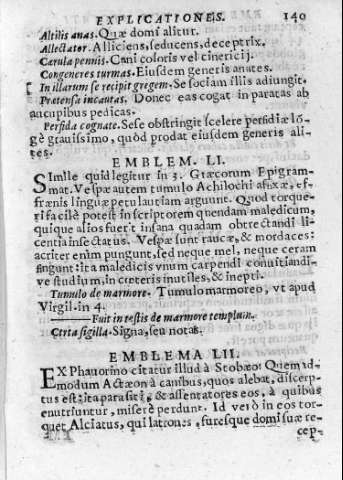 EXPLICATIONES. 140
Altilis anas. Quæ domi alitur.
Allectator. Alliciens, seducens, deceptrix.
Cærula pennis. Cani coloris vel cinericij.
Congeneres turmas. Eiusdem generis anates.
In illarum se recipit gregem. Se sociam illis adiungit.
Prætensa incautas. Donec eas cogat in paratas ab
aucupibus pedicas.
Perfida cognato. Sese obstringit scelere perfidiæ lō-
gè grauissimo, quòd prodat eiusdem generis ali-
tes.
EMBLEM. LI.
Simile quid legitur in 3. Græcorum Epigram-
mat. Vespæ autem tumulo Achilochi afixæ, ef-
frænis linguæ petulantiam arguunt. Quod torque-
ri facilè potest in scriptorem quendam maledicum,
quique alios fuerit insana quadam obtrectandi li-
centia insectatus. Vespæ sunt raucæ, & mordaces:
acriter enim pungunt, sed neque mel, neque ceram
fingunt: ita maledicis vnum carpendi conuitiandi-
ve studium, in cæteris inutiles, & inepti.
Tumulo de marmore. Tumulo marmoreo, vt apud
Virgil. in 4.
Fuit in tectis de marmore templum.
Certa sigilla. Signa, seu notas.
EMBLEMA LII.
EX Phauorino citatur illud à Stobæo: Quem ad-
modum Actæon à canibus, quos alebat, discerp-
tus est: ita parasiti, & assentatores eos, à quibus
enutriuntur, miserè perdunt. Id verò in eos tor-
quet Alciatus, qui latrones, furesque domi suæ re-
cep-